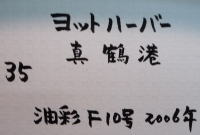 ヨットハーバー
真鶴港
35
油彩 F10号 2006年